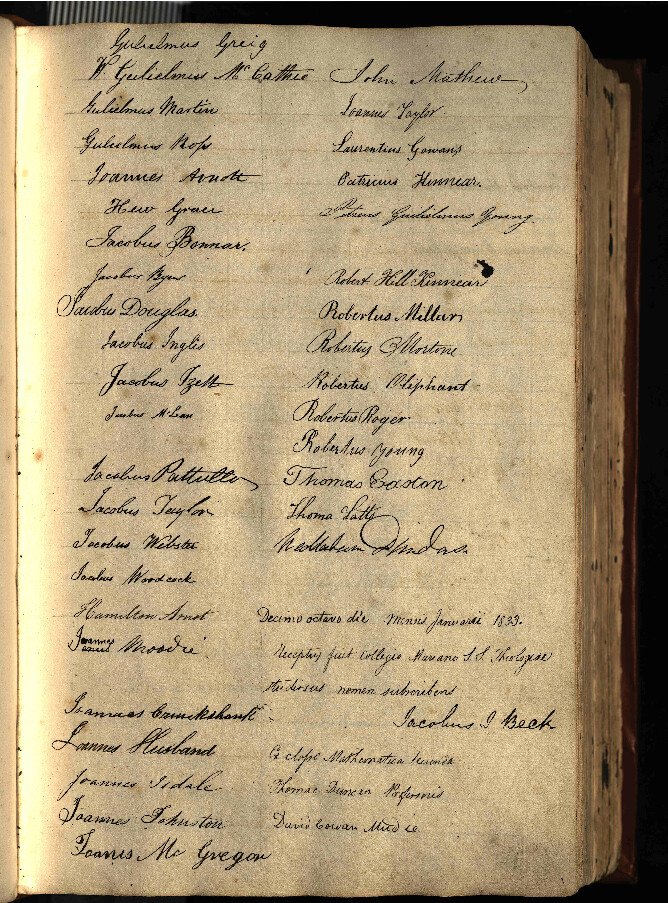 Gulielmus Greig
W. Gulielmus McCathie
Gulielmus Martin
Gulielmus Ross
Joannes Arnott
Hew Grace
Jacobus Bonnar.
Jacobus
Jacobus Douglas.
Jacobus Inglis
Jacobus Izett
Jacobus McLean
Jacobus Pattullo
Jacobus Taylor
Jacobus Webster
Jacobus Woodcock
Hamilton Arnot
Joannes Moodie
Joannes Cruickshank
Joannes Husband
Joannes Isdale
Joannes Johnston
Joannis Mc Gregor
John Mathew
Joannes Taylor
Laurentius Gowans
Patricius Kinnear.
Petrus Guilielmus Young.
Robert Hill Kinnear
Robertus Millar
Robertus Mortone
Robertus Oliphant
Robertus Roger
Robertus Young
Thomas Easton
Thoma
Decimo octavo die mensis Januarii 1833.
Receptus fuit Collegio Mariano S.S. Theologiae
studiosus nomen subscribens
Jacobus J Beck
Ex classe Mathematica secunda
Thomae Duncan Professoris
David Cowan Mudie